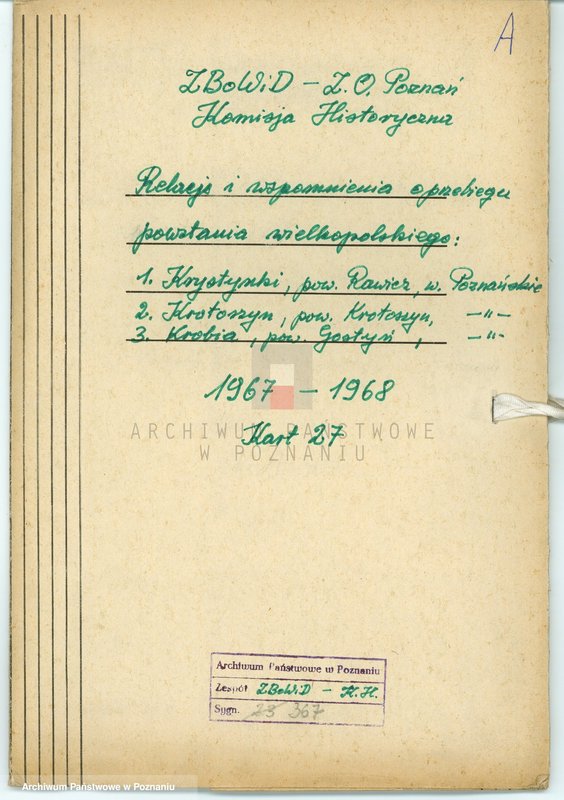 A
ZBoWiD – Z.O. Poznań
Komisja Historyczna
Relacje i wspomnienia o przebiegu
powstania wielkopolskiego:
1. Krystynki, pow. Rawicz, w. Poznańskie
2. Krotoszyn, pow. Krotoszyn, —"—
3. Krobia, pow. Gostyń, —"—
1967 – 1968
ARCHIWUM PAŃSTWOWE
W POZNANIU
Kart 27
Archiwum Państwowe w Poznaniu
Zespół ZBoWiD – K.H.
Sygn. 23 367
Archiwum Państwowe w Poznaniu